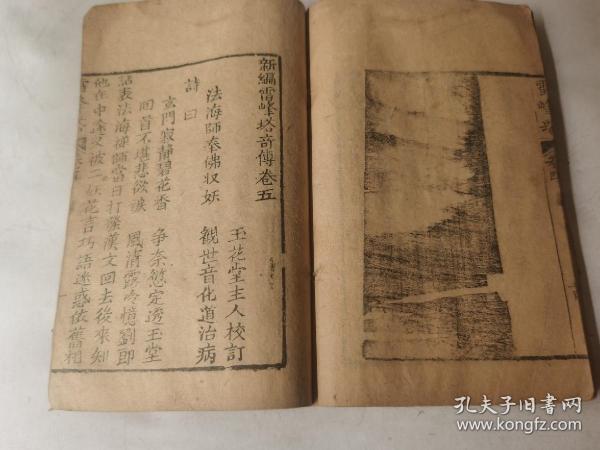 新編雷峰塔奇傳卷五
玉花堂主人校訂
法海師奉佛収妖 觀世音化道治病
詩曰
玄門寂静碧花香 争奈慾定透玉堂
回首不堪悲欲淚 風清露冷憶劉郎
話表法海禅師當日打發漢文回去後來知
他在中途又被二妖花言巧語迷惑依舊相
孔夫子旧书网
www.kongfz.com